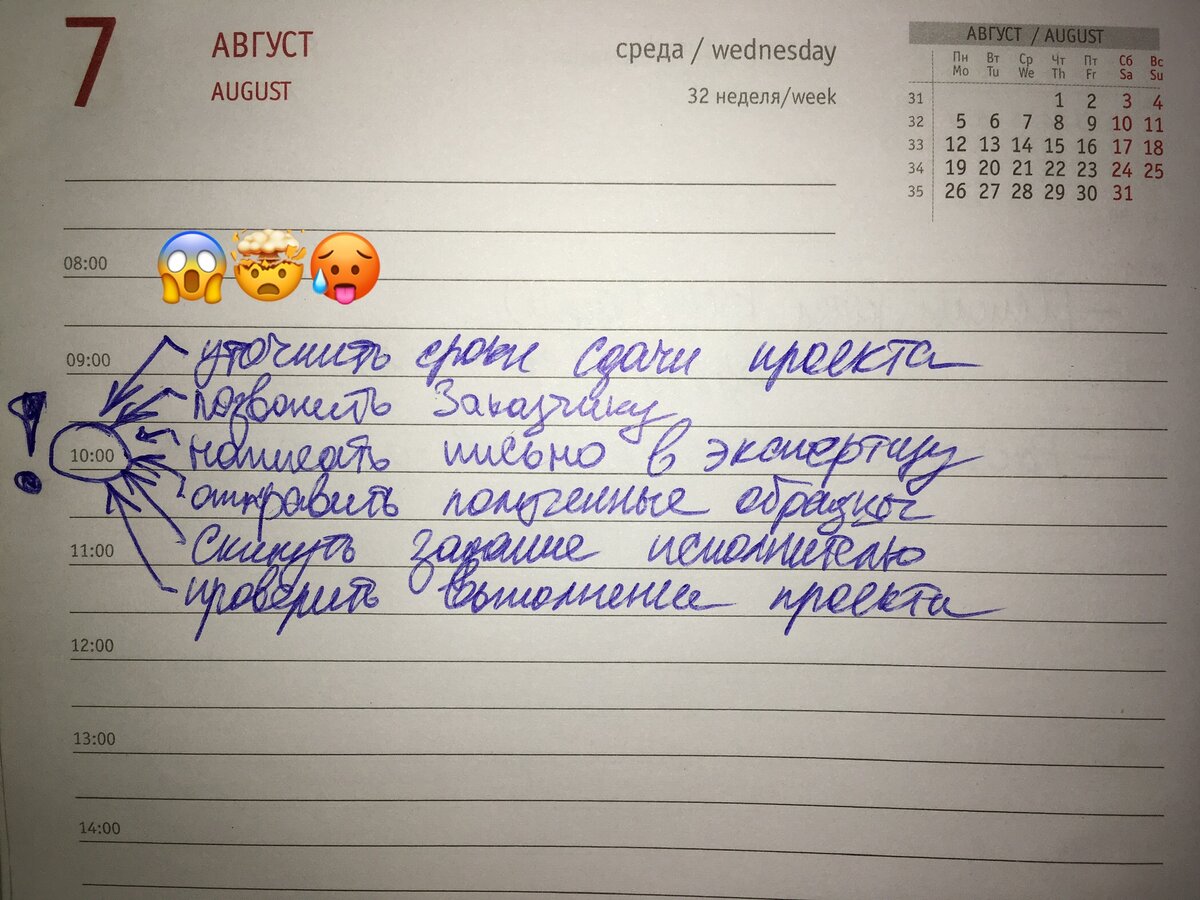 7 АВГУСТ
AUGUST
среда / wednesday
32 неделя/week
АВГУСТ / AUGUST
Пн Вт Ср Чт Пт Сб Вс
Mo Tu We Th Fr Sa Su
31 1 2 3 4
32 5 6 7 8 9 10 11
33 12 13 14 15 16 17 18
34 19 20 21 22 23 24 25
35 26 27 28 29 30 31
08:00
09:00 уточнить сроки сдачи проекта
позвонить Заказчику
! 10:00 написать письмо в экспертизу
отправить полученные образцы
11:00 Скинуть задание исполнителю
проверить выполнение проекта
12:00
13:00
14:00